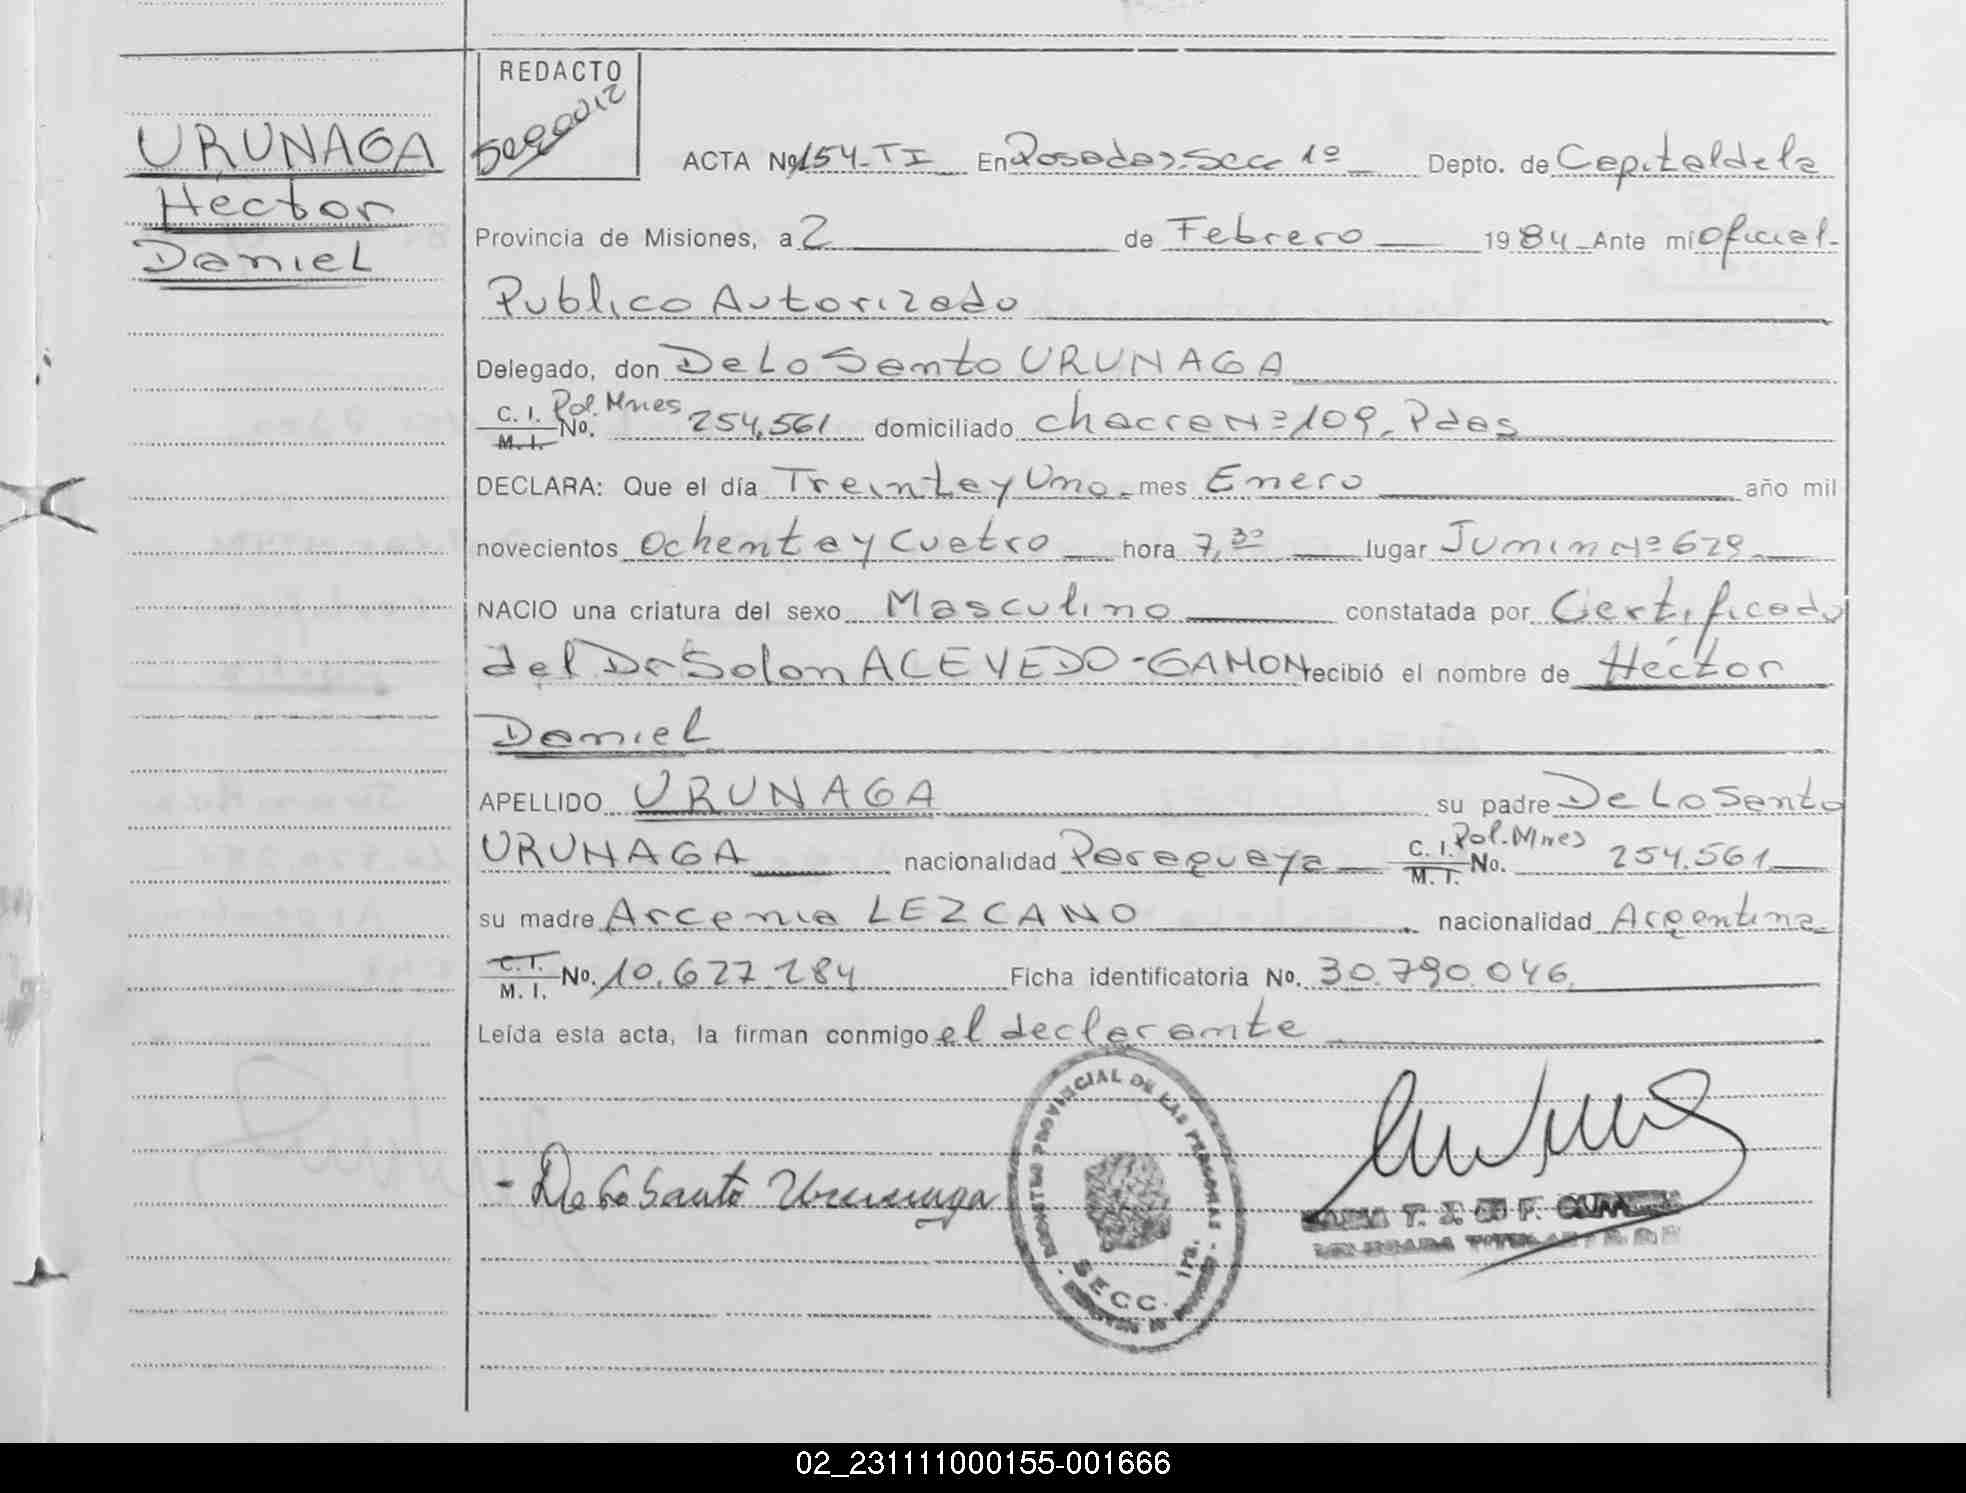 REDACTO
URUNAGA
Héctor
Daniel
ACTA Nº 154-TI En Posadas. Secc 1º Depto. de Capital de la
Provincia de Misiones, a 2 de Febrero 1984 Ante mi Oficial
Publico Autorizado
Delegado, don De Lo Santo URUNAGA
C. I. Pol. Mnes
M. I. No. 254,561 domiciliado chacra Nº 109. Pdas
DECLARA: Que el día Treinta y Uno mes Enero año mil
novecientos Ochenta y Cuatro hora 7,30 lugar Junin Nº 629
NACIO una criatura del sexo Masculino constatada por Certificado
del Dr Solon ACEVEDO-GAMON recibió el nombre de Héctor
Daniel
APELLIDO URUNAGA su padre De Lo Santo
URUNAGA nacionalidad Paraguaya C. I. Pol. Mnes
M. I. No. 254.561
su madre Arcenia LEZCANO nacionalidad Argentina
C. I.
M. I. No. 10.627.284 Ficha identificatoria No. 30.790.046
Leída esta acta, la firman conmigo el declarante
De Lo Santo Urunaga
PROVINCIAL DE LAS PERSONAS
SECC. 1ra.
T. J. DE F.
02_231111000155-001666